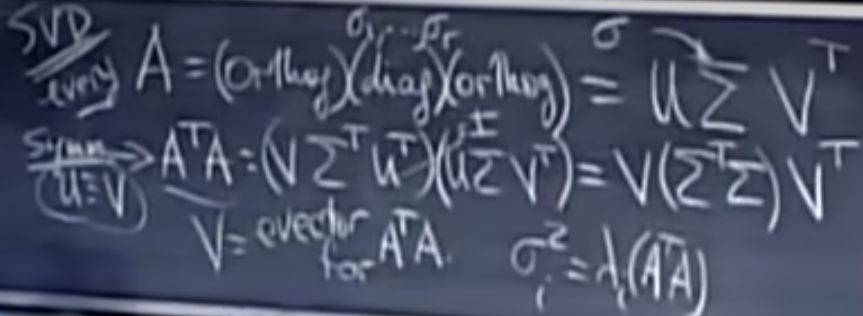 SVD σ₁...σᵣ σ
every A = (orthog)(diag)(orthog) = U Σ Vᵀ
Symm → AᵀA = (V Σᵀ Uᵀ)(U Σ Vᵀ) = V(ΣᵀΣ)Vᵀ
U=V I
V = evector for AᵀA. σᵢ² = λᵢ(AᵀA)